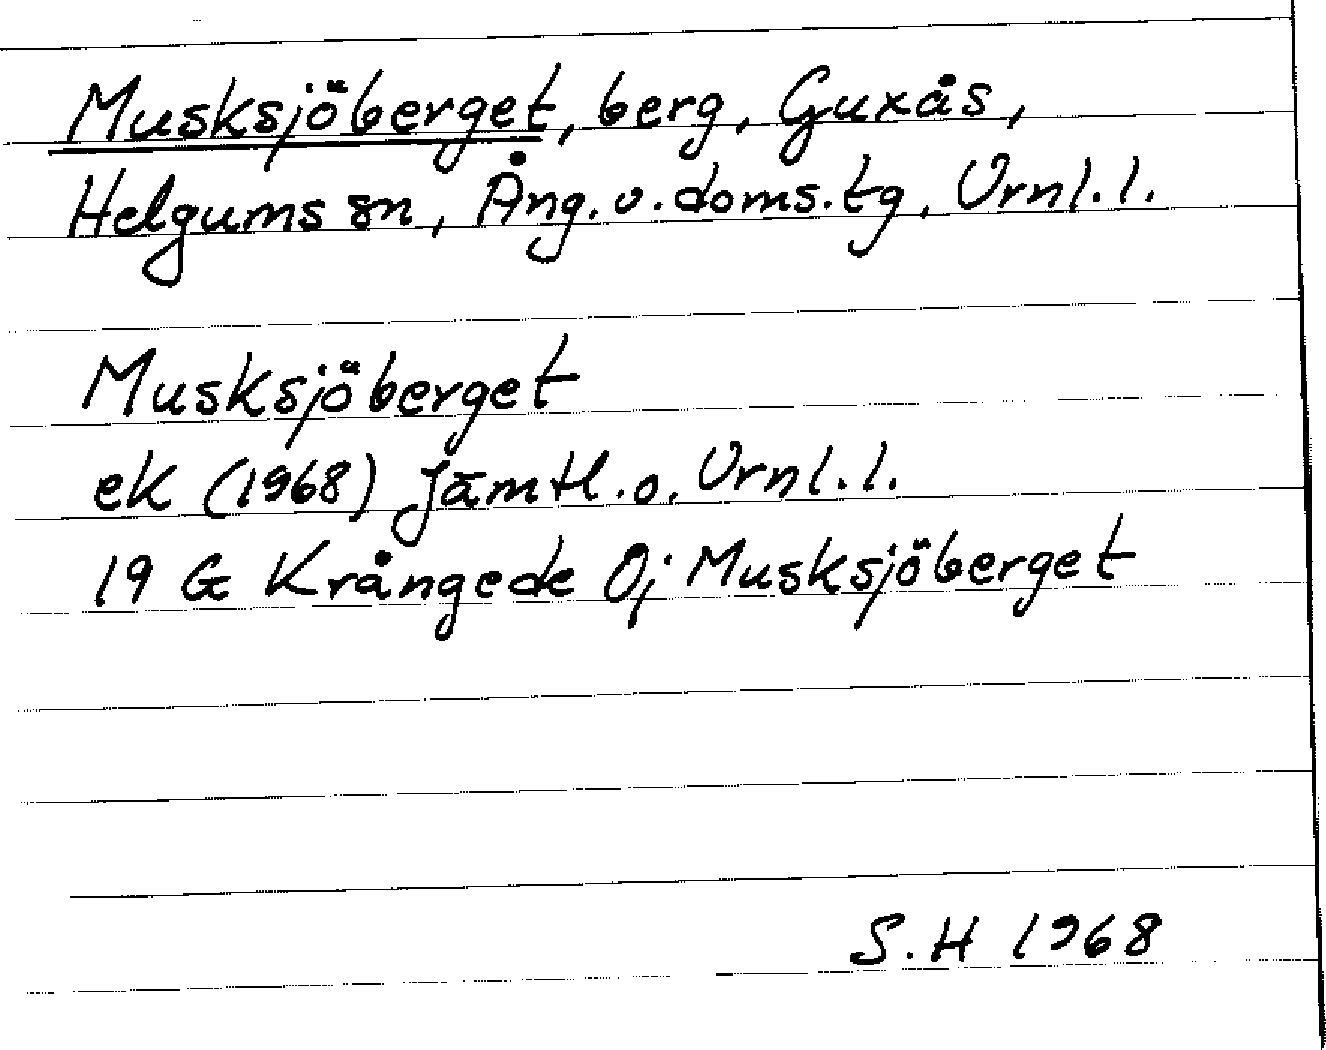 Musksjöberget, berg, Guxås,
Helgums sn, Ång. v. doms. tg, Vrnl. l.
Musksjöberget
ek (1968) Jämtl. o. Vrnl. l.
19 G Krångede 0j Musksjöberget
S.H 1968